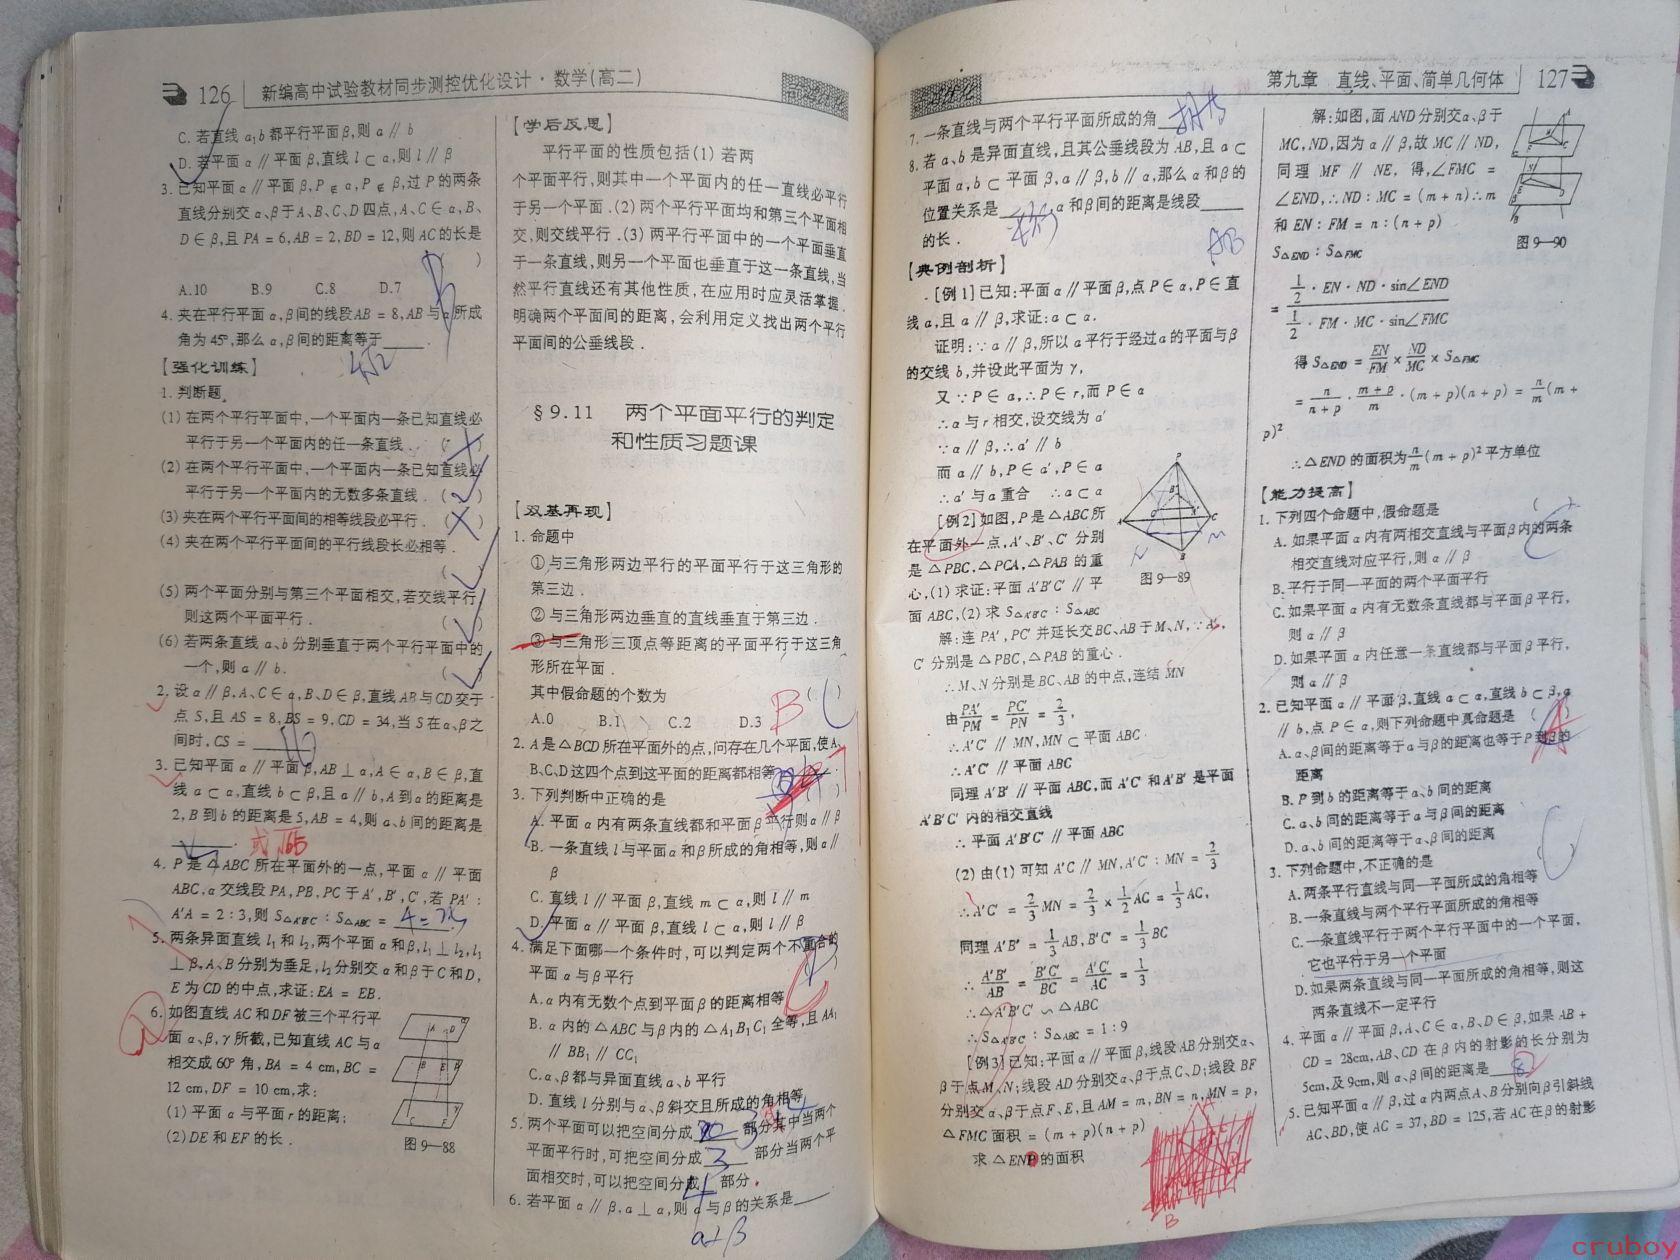 126 新编高中试验教材同步测控优化设计·数学(高二)
C. 若直线 a、b 都平行平面 β,则 a∥b
D. 若平面 α∥平面 β,直线 l⊂α,则 l∥β
3. 已知平面 α∥平面 β,P∉α,P∉β,过 P 的两条
直线分别交 α、β 于 A、B、C、D 四点,A、C∈α,B、
D∈β,且 PA=6,AB=2,BD=12,则 AC 的长是
( )
A.10 B.9 C.8 D.7
4. 夹在平行平面 α,β 间的线段 AB=8,AB 与 α 所成
角为 45°,那么 α,β 间的距离等于 .
4√2
【强化训练】
1. 判断题
(1) 在两个平行平面中,一个平面内一条已知直线必
平行于另一个平面内的任一条直线. ( )
(2) 在两个平行平面中,一个平面内一条已知直线必
平行于另一个平面内的无数多条直线. ( )
(3) 夹在两个平行平面间的相等线段必平行. ( )
(4) 夹在两个平行平面间的平行线段长必相等.
( )
(5) 两个平面分别与第三个平面相交,若交线平行,
则这两个平面平行. ( )
(6) 若两条直线 a、b 分别垂直于两个平行平面中的
一个,则 a∥b. ( )
2. 设 α∥β,A、C∈α,B、D∈β,直线 AB 与 CD 交于
点 S,且 AS=8,BS=9,CD=34,当 S 在 α、β 之
间时,CS=
3. 已知平面 α∥平面 β,AB⊥α,A∈α,B∈β,直
线 a⊂α,直线 b⊂β,且 a∥b,A 到 a 的距离是
2,B 到 b 的距离是 5,AB=4,则 a、b 间的距离是
. 或√65
4. P 是 △ABC 所在平面外的一点,平面 α∥平面
ABC,α 交线段 PA,PB,PC 于 A′,B′,C′,若 PA′:
A′A=2:3,则 S△A′B′C′:S△ABC= 4:25
5. 两条异面直线 l₁ 和 l₂,两个平面 α 和 β,l₁⊥l₂,l₁
⊥β,A、B 分别为垂足,l₂ 分别交 α 和 β 于 C 和 D,
E 为 CD 的中点,求证:EA=EB.
6. 如图直线 AC 和 DF 被三个平行平
面 α、β,γ 所截,已知直线 AC 与 α
相交成 60° 角,BA=4 cm,BC=
12 cm,DF=10 cm,求:
(1) 平面 α 与平面 r 的距离;
(2) DE 和 EF 的长.
图 9—88
【学后反思】
平行平面的性质包括(1) 若两
个平面平行,则其中一个平面内的任一直线必平行
于另一个平面.(2) 两个平行平面均和第三个平面相
交,则交线平行.(3) 两平行平面中的一个平面垂直
于一条直线,则另一个平面也垂直于这一条直线,当
然平行直线还有其他性质,在应用时应灵活掌握.
明确两个平面间的距离,会利用定义找出两个平行
平面间的公垂线段.
§9.11 两个平面平行的判定
和性质习题课
【双基再现】
1. 命题中
①与三角形两边平行的平面平行于这三角形的
第三边.
②与三角形两边垂直的直线垂直于第三边.
③与三角形三顶点等距离的平面平行于这三角
形所在平面.
其中假命题的个数为 B ( )
A.0 B.1 C.2 D.3
2. A 是 △BCD 所在平面外的点,问存在几个平面,使 A、
B、C、D 这四个点到这平面的距离都相等 7
3. 下列判断中正确的是 ( )
A. 平面 α 内有两条直线都和平面 β 平行则 α∥β
B. 一条直线 l 与平面 α 和 β 所成的角相等,则 α∥
β
C. 直线 l∥平面 β,直线 m⊂α,则 l∥m
D. 平面 α∥平面 β,直线 l⊂α,则 l∥β
4. 满足下面哪一个条件时,可以判定两个不重合的
平面 α 与 β 平行 C
A. α 内有无数个点到平面 β 的距离相等
B. α 内的 △ABC 与 β 内的 △A₁B₁C₁ 全等,且 AA₁
∥BB₁∥CC₁
C. α、β 都与异面直线 a、b 平行
D. 直线 l 分别与 α、β 斜交且所成的角相等
5. 两个平面可以把空间分成 部分其中当两个
平面平行时,可把空间分成 3 部分当两个平
面相交时,可以把空间分成 4 部分.
6. 若平面 α∥β.a⊥α,则 a 与 β 的关系是
a⊥β
第九章 直线、平面、简单几何体 127
7. 一条直线与两个平行平面所成的角 相等
8. 若 a、b 是异面直线,且其公垂线段为 AB,且 a⊂
平面 α,b⊂平面 β,a∥β,b∥α,那么 α 和 β 的
位置关系是 α 和 β 间的距离是线段
的长. AB
【典例剖析】
[例 1] 已知:平面 α∥平面 β,点 P∈α,P∈直
线 a,且 a∥β,求证:a⊂α.
证明:∵a∥β,所以 a 平行于经过 a 的平面与 β
的交线 b,并设此平面为 γ,
又∵P∈a,∴P∈r,而 P∈α
∴α 与 r 相交,设交线为 a′
∵α∥β,∴a′∥b
而 a∥b,P∈a′,P∈a
∴a′ 与 a 重合 ∴a⊂α
[例 2] 如图,P 是 △ABC 所
在平面外一点,A′、B′、C′ 分别
是 △PBC,△PCA,△PAB 的重
心,(1) 求证:平面 A′B′C′∥平
面 ABC,(2) 求 S△A′B′C′:S△ABC
图 9—89
解:连 PA′,PC′ 并延长交 BC、AB 于 M、N,∵A′,
C′ 分别是 △PBC,△PAB 的重心.
∴M、N 分别是 BC、AB 的中点,连结 MN
由 PA′/PM = PC′/PN = 2/3,
∴A′C′∥MN,MN⊂平面 ABC
∴A′C′∥平面 ABC
同理 A′B′∥平面 ABC,而 A′C′ 和 A′B′ 是平面
A′B′C′ 内的相交直线
∴平面 A′B′C′∥平面 ABC
(2) 由(1) 可知 A′C∥MN,A′C′:MN = 2/3
∴A′C′ = 2/3 MN = 2/3 × 1/2 AC = 1/3 AC,
同理 A′B′ = 1/3 AB,B′C′ = 1/3 BC
∴ A′B′/AB = B′C′/BC = A′C′/AC = 1/3
∴△A′B′C′∽△ABC
∴S△A′B′C′:S△ABC=1:9
[例 3] 已知:平面 α∥平面 β,线段 AB 分别交 α、
β 于点 M、N;线段 AD 分别交 α、β 于点 C、D;线段 BF
分别交 α、β 于点 F、E,且 AM=m,BN=n,MN=p,
△FMC 面积=(m+p)(n+p)
求 △END 的面积
解:如图,面 AND 分别交 α、β 于
MC,ND,因为 α∥β,故 MC∥ND,
同理 MF∥NE,得,∠FMC=
∠END,∴ND:MC=(m+n)∴m
和 EN:FM=n:(n+p)
图 9—90
S△END:S△FMC
= (1/2·EN·ND·sin∠END)/(1/2·FM·MC·sin∠FMC)
得 S△END = EN/FM × ND/MC × S△FMC
= n/(n+p) · (m+p)/m · (m+p)(n+p) = n/m (m+
p)²
∴△END 的面积为 n/m (m+p)² 平方单位
【能力提高】
1. 下列四个命题中,假命题是 ( )
A. 如果平面 α 内有两相交直线与平面 β 内的两条
相交直线对应平行,则 α∥β
B. 平行于同一平面的两个平面平行
C. 如果平面 α 内有无数条直线都与平面 β 平行,
则 α∥β
D. 如果平面 α 内任意一条直线都与平面 β 平行,
则 α∥β
2. 已知平面 α∥平面 β,直线 a⊂α,直线 b⊂β,a
∥b,点 P∈a,则下列命题中真命题是 ( A )
A. α、β 间的距离等于 a 与 β 的距离也等于 P 到 β 的
距离
B. P 到 b 的距离等于 a、b 间的距离
C. a、b 间的距离等于 a 与 β 间的距离
D. a、b 间的距离等于 α、β 间的距离
3. 下列命题中,不正确的是 ( )
A. 两条平行直线与同一平面所成的角相等
B. 一条直线与两个平行平面所成的角相等
C. 一条直线平行于两个平行平面中的一个平面,
它也平行于另一个平面
D. 如果两条直线与同一平面所成的角相等,则这
两条直线不一定平行
4. 平面 α∥平面 β,A、C∈α,B、D∈β,如果 AB+
CD=28cm,AB、CD 在 β 内的射影的长分别为
5cm,及 9cm,则 α、β 间的距离是
5. 已知平面 α∥β,过 α 内两点 A、B 分别向 β 引斜线
AC、BD,使 AC=37,BD=125,若 AC 在 β 的射影
cruboy